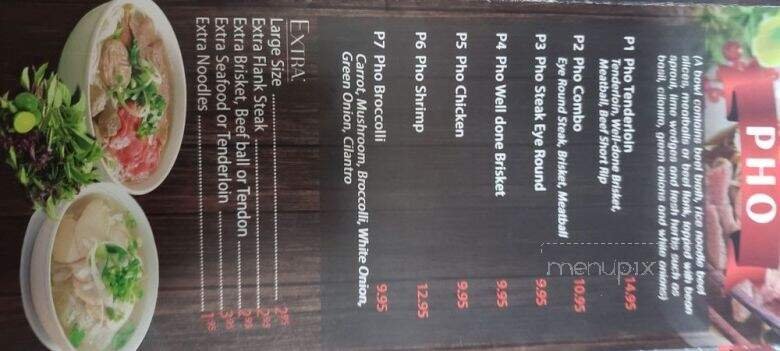 PHO
(A bowl contains beef broth, rice noodle beef
slices, meatballs or beef flank, topped with bean
sprout, lime wedges and fresh herbs such as
basil, cilantro, green onions and white onions)
P1 Pho Tenderloin 14.95
Tenderloin, Well-done Brisket,
Meatball, Beef Short Rip
P2 Pho Combo 10.95
Eye Round Steak, Brisket, Meatball
P3 Pho Steak Eye Round 9.95
P4 Pho Well done Brisket 9.95
P5 Pho Chicken 9.95
P6 Pho Shrimp 12.95
P7 Pho Broccolli 9.95
Carrot, Mushroom, Broccolli, White Onion,
Green Onion, Cilantro
EXTRA
Large Size 2.95
Extra Flank Steak 2.95
Extra Brisket, Beef ball or Tendon 2.99
Extra Seafood or Tenderloin 3.95
Extra Noodles 1.95
menupix